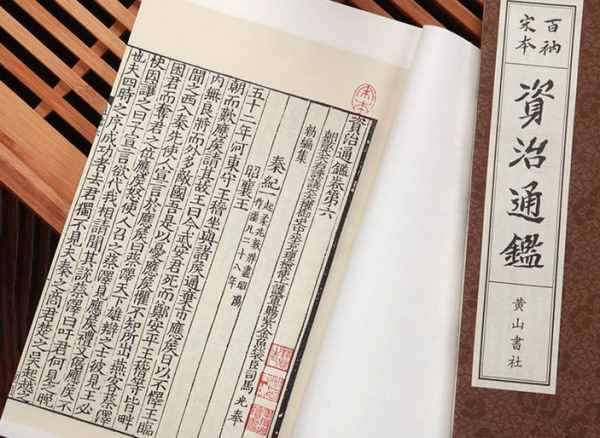 百衲
宋本
資治通鑑
黄山書社
資治通鑑卷第六
朝散大夫右諫議大夫 司馬光奉
勑編集
秦紀一
昭襄王
五十二年河東守王稽坐與諸侯通棄市應侯日以不懌王
朝而歎應侯請其故王曰今武安君死而鄭安平王稽等皆畔
內無良將而外多敵國吾是以憂應侯懼不知所出燕客蔡澤
聞之西入秦先使人宣言於應侯曰蔡澤天下雄辯之士彼見王必
困君而奪君之位應侯怒使人召之蔡澤見應侯禮又倨應侯不
快因讓之曰子宣言欲代我相請聞其說蔡澤曰吁君何見之晚
也夫四時之序成功者去君獨不見夫秦之商君楚之吳起越之